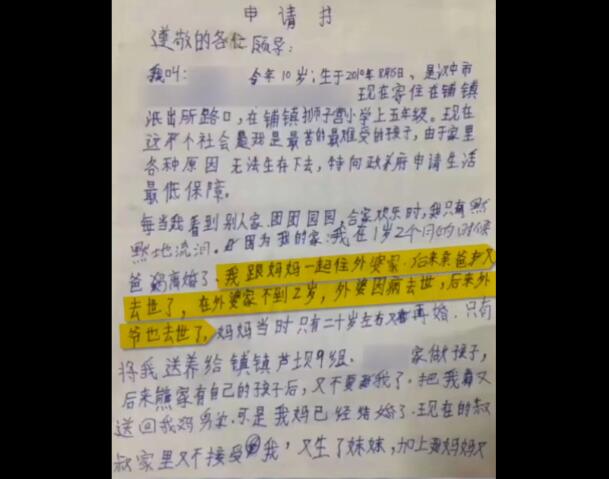 申请书
尊敬的各位领导:
我叫: 今年10岁;生于2010年8月15日、是汉中市
现在家住在铺镇
派出所路口,在铺镇狮子营小学上五年级。现在
这个社会是我是最苦的最难受的孩子,由于家里
各种原因 无法生存下去,特向政府申请生活
最低保障。
每当我看到别人家.团团园园,合家欢乐时,我只有默
默地流泪.因为我的家:我在1岁2个月的时候
爸妈离婚了.我跟妈妈一起住外婆家.后来亲爸又
去世了,在外婆家不到2岁,外婆因病去世,后来外
爷也去世了,妈妈当时只有二十岁左右又再婚.只有
将我送养给镇镇芦坝9组. 家做孩子,
后来熊家有自己的孩子后,又不要我了.把我又
送回我妈身边.可是我妈已经结婚了.现在的叔
叔家里又不接受我,又生了妹妹,加上妈妈又